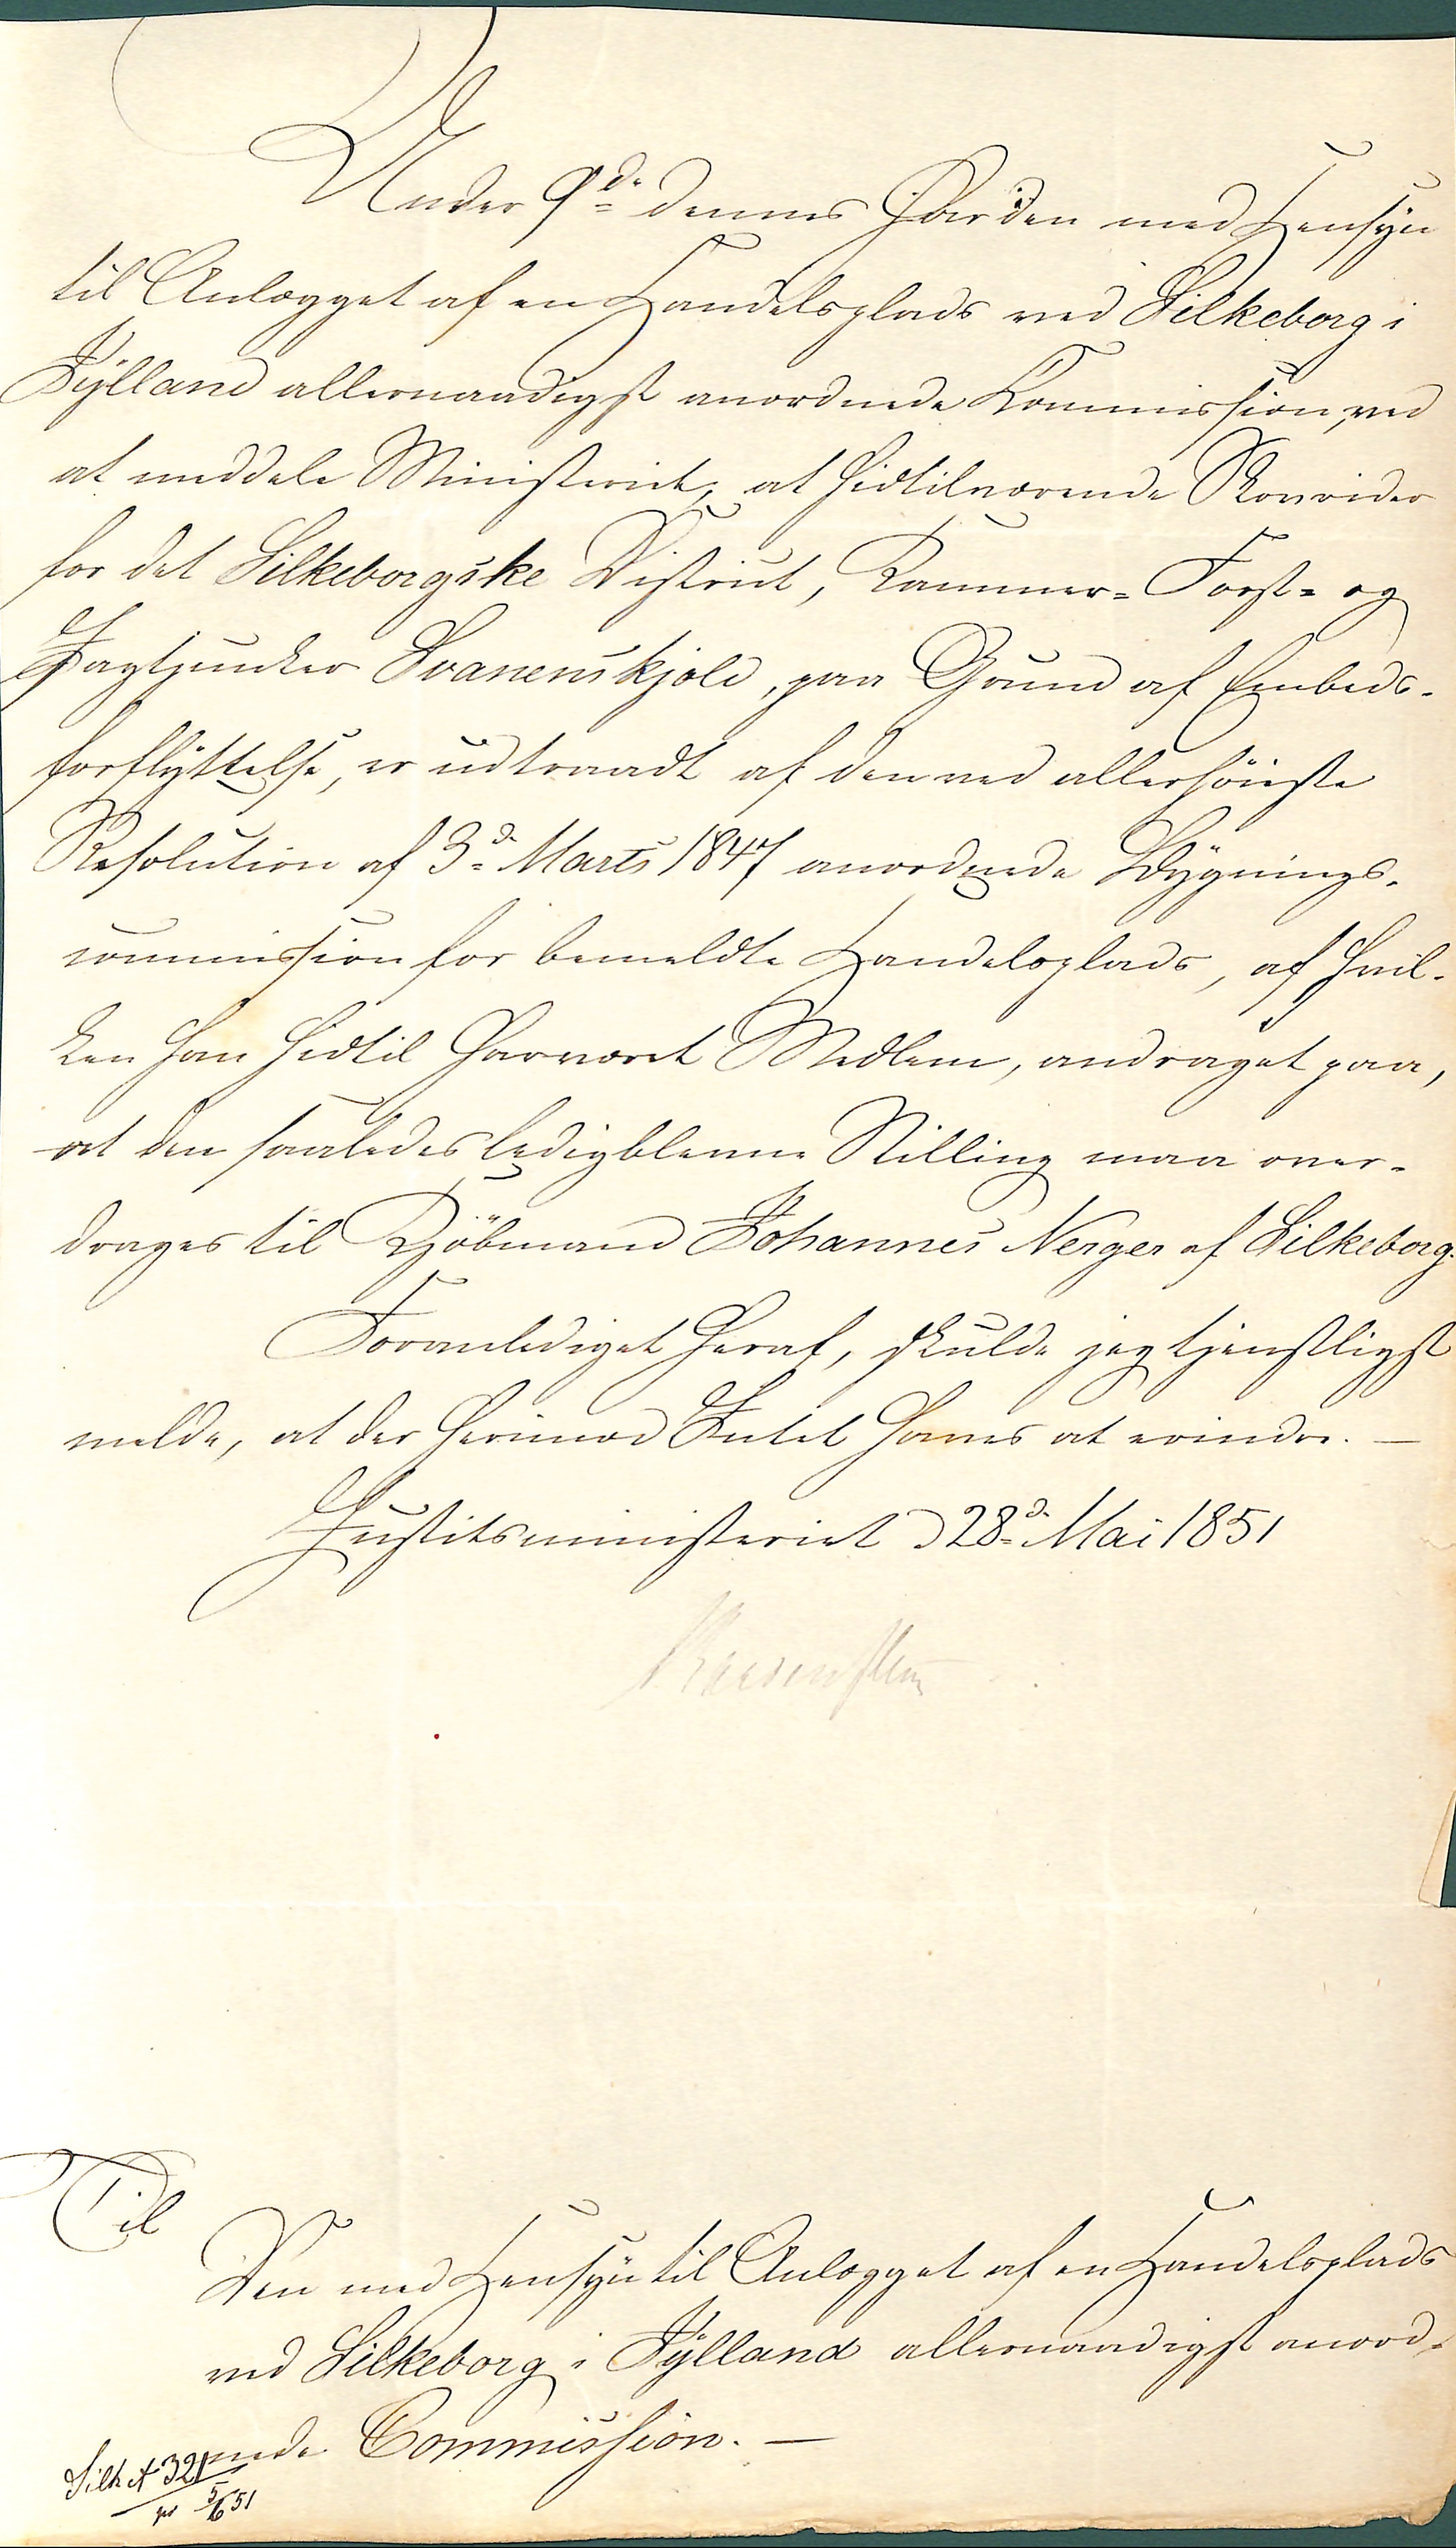 Under 9de dennes har den med Hensyn
til Anlægget af en Handelsplads ved Silkeborg i
Jylland allernaadigst anordnede Kommission, ved
at meddele Ministeriet, at hidtilværende Skovrider
for det Silkeborgske District, Kammer- Forst- og
Jagtjunker Svanenskjold, paa Grund af Embeds-
forflyttelse, er udtraadt af den ved allerhöieste
Resolution af 3de Marts 1847 anordnede Bygnings-
commission for bemeldte Handelsplads, af hvil-
ken han hidtil har været Medlem, andraget paa,
at den saaledes ledigblevne Stilling maa over-
drages til Kjöbmand Johannes Nerger af Silkeborg.
Foranlediget heraf, skulde jeg tjenstligst
melde, at der herimod Intet haves at erindre. —
Justitsministeriet d 28de Mai 1851
Til
Den med Hensyn til Anlægget af en Handelsplads
ved Silkeborg i Jylland allernaadigst anord-
nede Commission. —
Silk A 321
pr 5/6 51